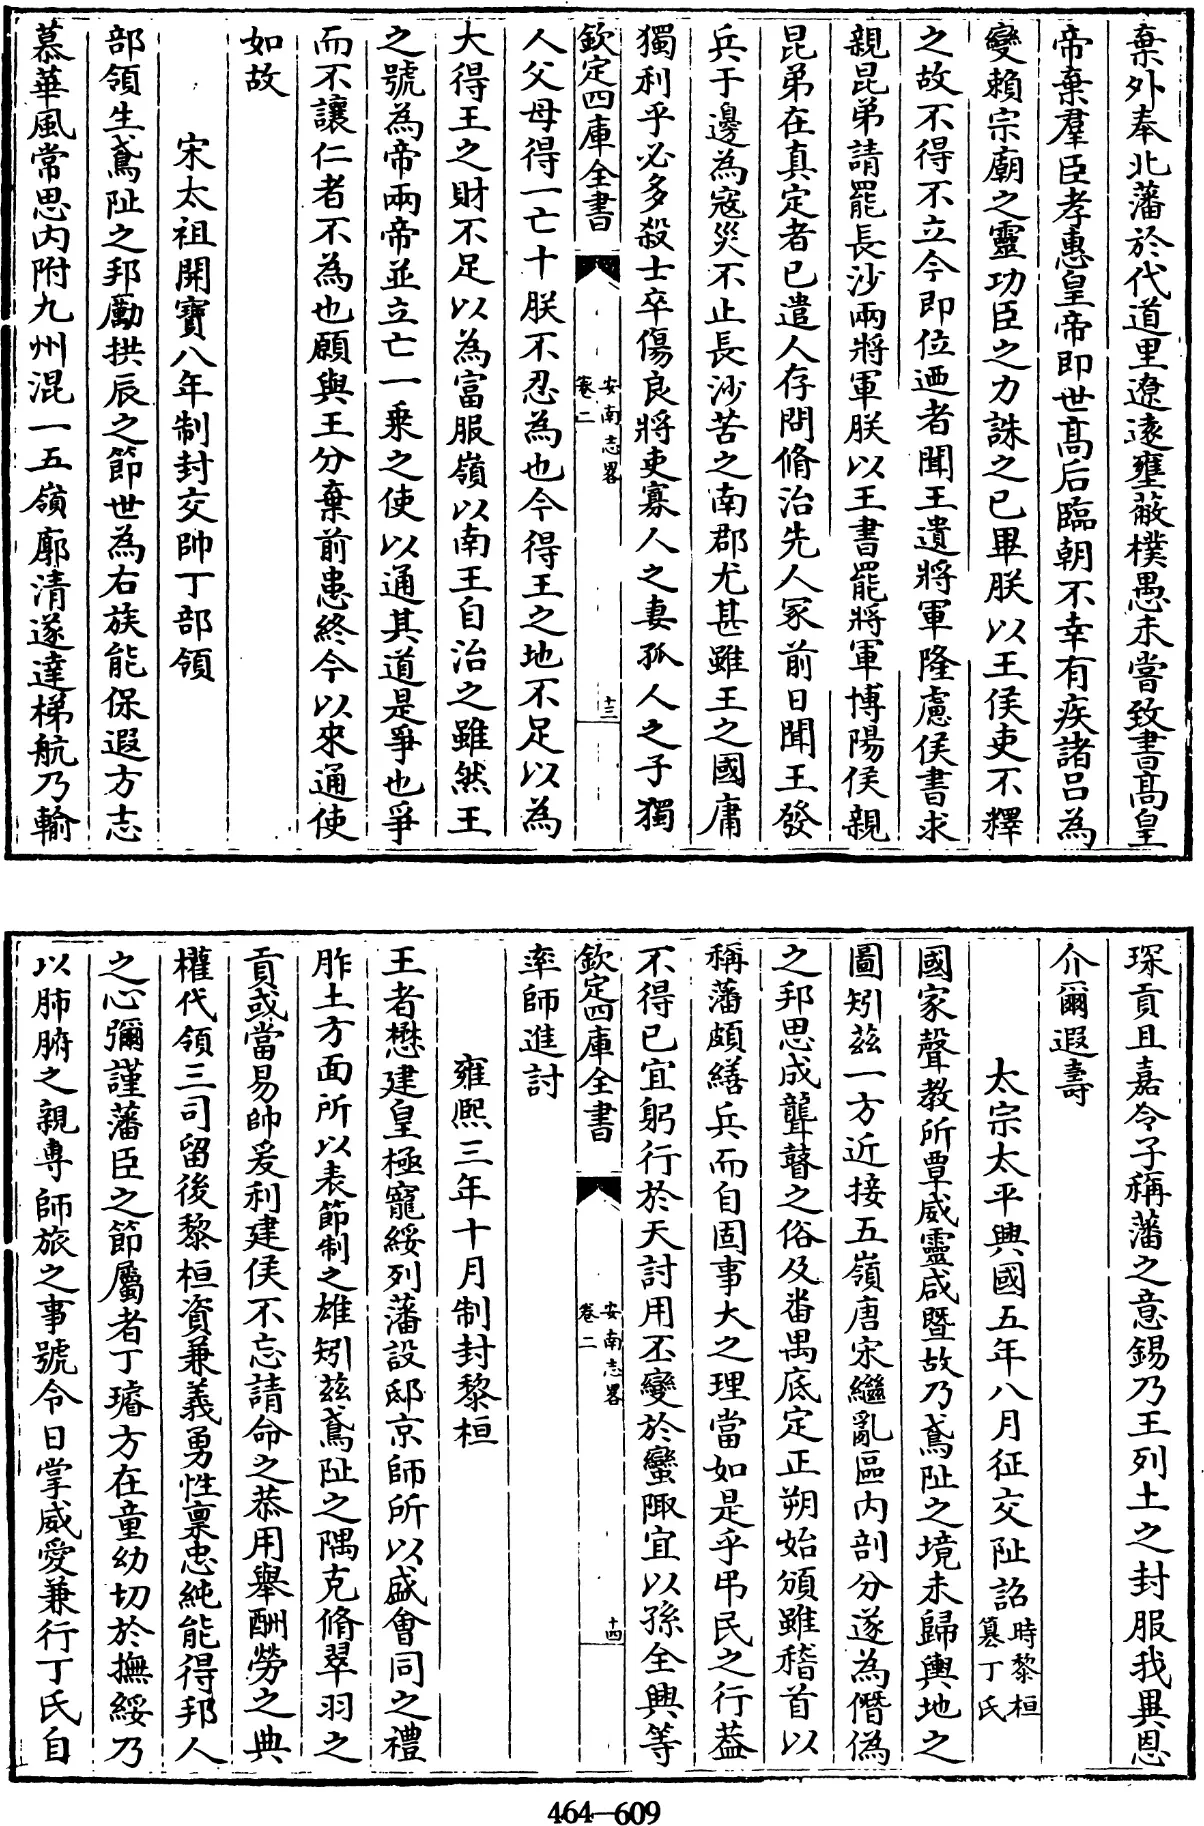 棄外奉北藩於代道里遼遠壅蔽樸愚未嘗致書高皇
帝棄羣臣孝惠皇帝即世高后臨朝不幸有疾諸呂為
變賴宗廟之靈功臣之力誅之已畢朕以王侯吏不釋
之故不得不立今即位迺者聞王遺將軍隆慮侯書求
親昆弟請罷長沙兩將軍朕以王書罷將軍博陽侯親
昆弟在真定者已遣人存問脩治先人冢前日聞王發
兵于邊為寇災不止長沙苦之南郡尤甚雖王之國庸
獨利乎必多殺士卒傷良將吏寡人之妻孤人之子獨
欽定四庫全書
安南志畧
卷二
十三
人父母得一亡十朕不忍為也今得王之地不足以為
大得王之財不足以為富服嶺以南王自治之雖然王
之號為帝兩帝並立亡一乘之使以通其道是爭也爭
而不讓仁者不為也願與王分棄前患終今以來通使
如故
宋太祖開寶八年制封交帥丁部領
部領生鳶阯之邦勵拱辰之節世為右族能保遐方志
慕華風常思内附九州混一五嶺廓清遂達梯航乃輸
琛貢且嘉令子稱藩之意錫乃王列土之封服我異恩
介爾遐壽
太宗太平興國五年八月征交阯詔時黎桓篡丁氏
國家聲教所覃威靈咸暨故乃鳶阯之境未歸輿地之
圖矧茲一方近接五嶺唐宋繼亂區内剖分遂為僭偽
之邦思成聾瞽之俗及畨禺底定正朔始頒雖稽首以
稱藩頗繕兵而自固事大之理當如是乎弔民之行葢
不得已宜躬行於天討用丕變於蠻陬宜以孫全興等
欽定四庫全書
安南志畧
卷二
十四
率師進討
雍熙三年十月制封黎桓
王者懋建皇極寵綏列藩設邸京師所以盛會同之禮
胙土方面所以表節制之雄矧茲鳶阯之隅克脩翠羽之
貢或當易帥爰利建侯不忘請命之恭用舉酬勞之典
權代領三司留後黎桓資兼義勇性禀忠純能得邦人
之心彌謹藩臣之節屬者丁璿方在童幼切於撫綏乃
以肺腑之親專師旅之事號令日掌威愛兼行丁氏自
464—609